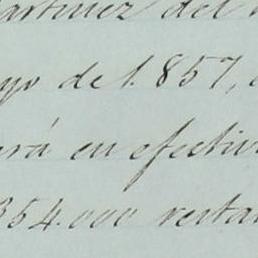 artinez del
yo de 1.857,
erá en efectiv
354.000 restan